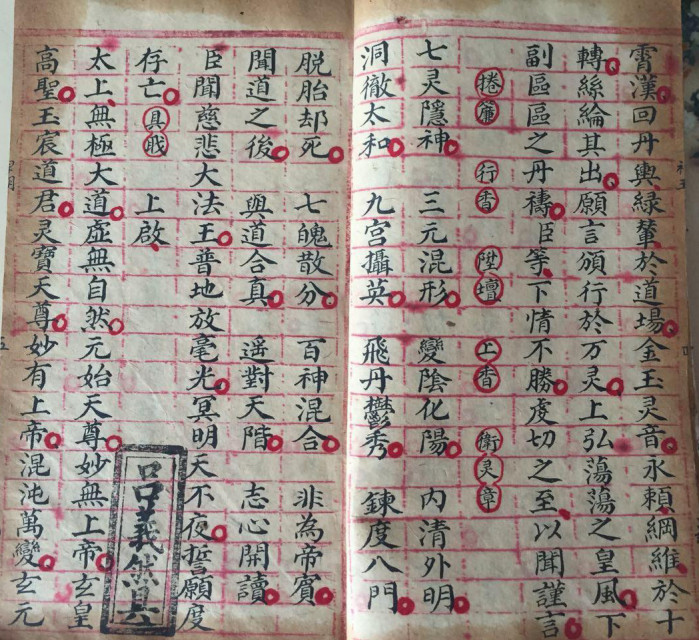 霄漢回丹輿緑輦於道場金玉灵音永賴綱維於十
轉絲綸其出願言頒行於万灵上弘蕩蕩之皇風下
副區區之丹禱臣等下情不勝虔切之至以聞謹言
捲簾 行香 陞壇 上香 衛灵章
七灵隱神 三元混形 變陰化陽 内清外明
洞徹太和 九宫攝英 飛丹鬱秀 鍊度八門
脱胎却死 七魄散分 百神混合 非為帝賓
聞道之後 與道合真 遥對天階 志心開讀
臣聞慈悲大法王普地放毫光冥明天不夜誓願度
存亡 具 上啟
太上無極大道虛無自然元始天尊妙無上帝玄皇
高聖玉宸道君灵寶天尊妙有上帝混沌萬變玄元